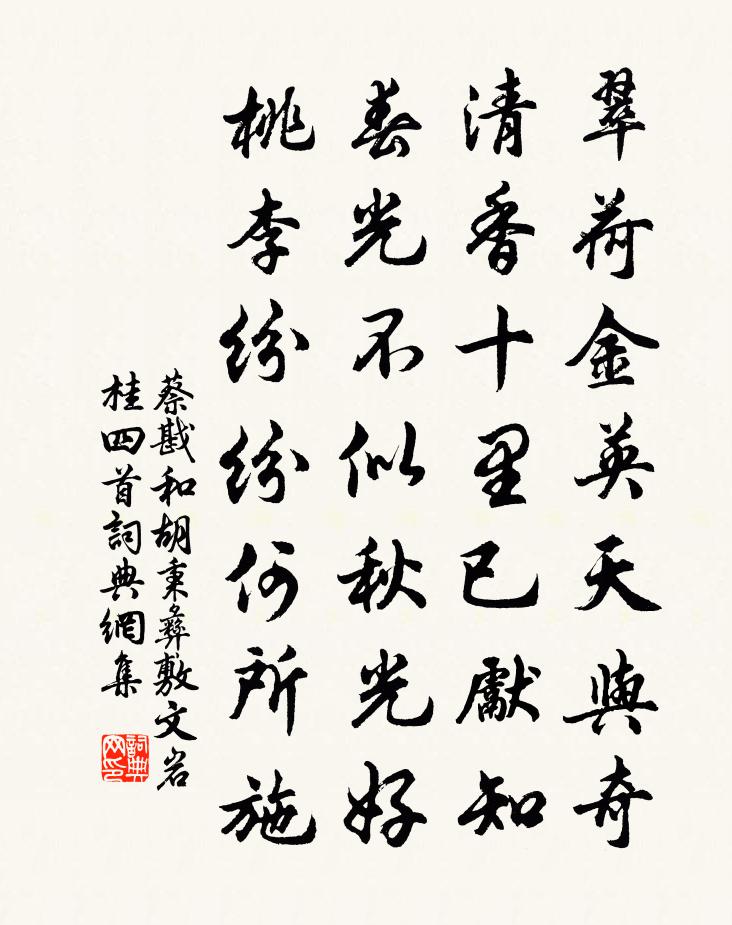 翠荷金英天與奇
清香十里已獻知
春光不似秋光好
桃李紛紛何所施
蔡戡和胡秉彝敷文岩
桂四首詞典網集
詞典网印